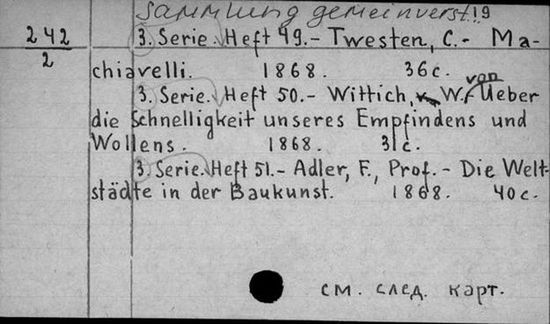 Sammlung gemeinverst. !9
242
2
3. Serie. Heft 49.- Twesten, C.- Ma-
chiavelli. 1868. 36c.
3. Serie. Heft 50.- Wittich, W. von Ueber
die Schnelligkeit unseres Empfindens und
Wollens. 1868. 31c.
3. Serie. Heft 51.- Adler, F., Prof.- Die Welt-
städte in der Baukunst. 1868. 40c.
см. след. карт.